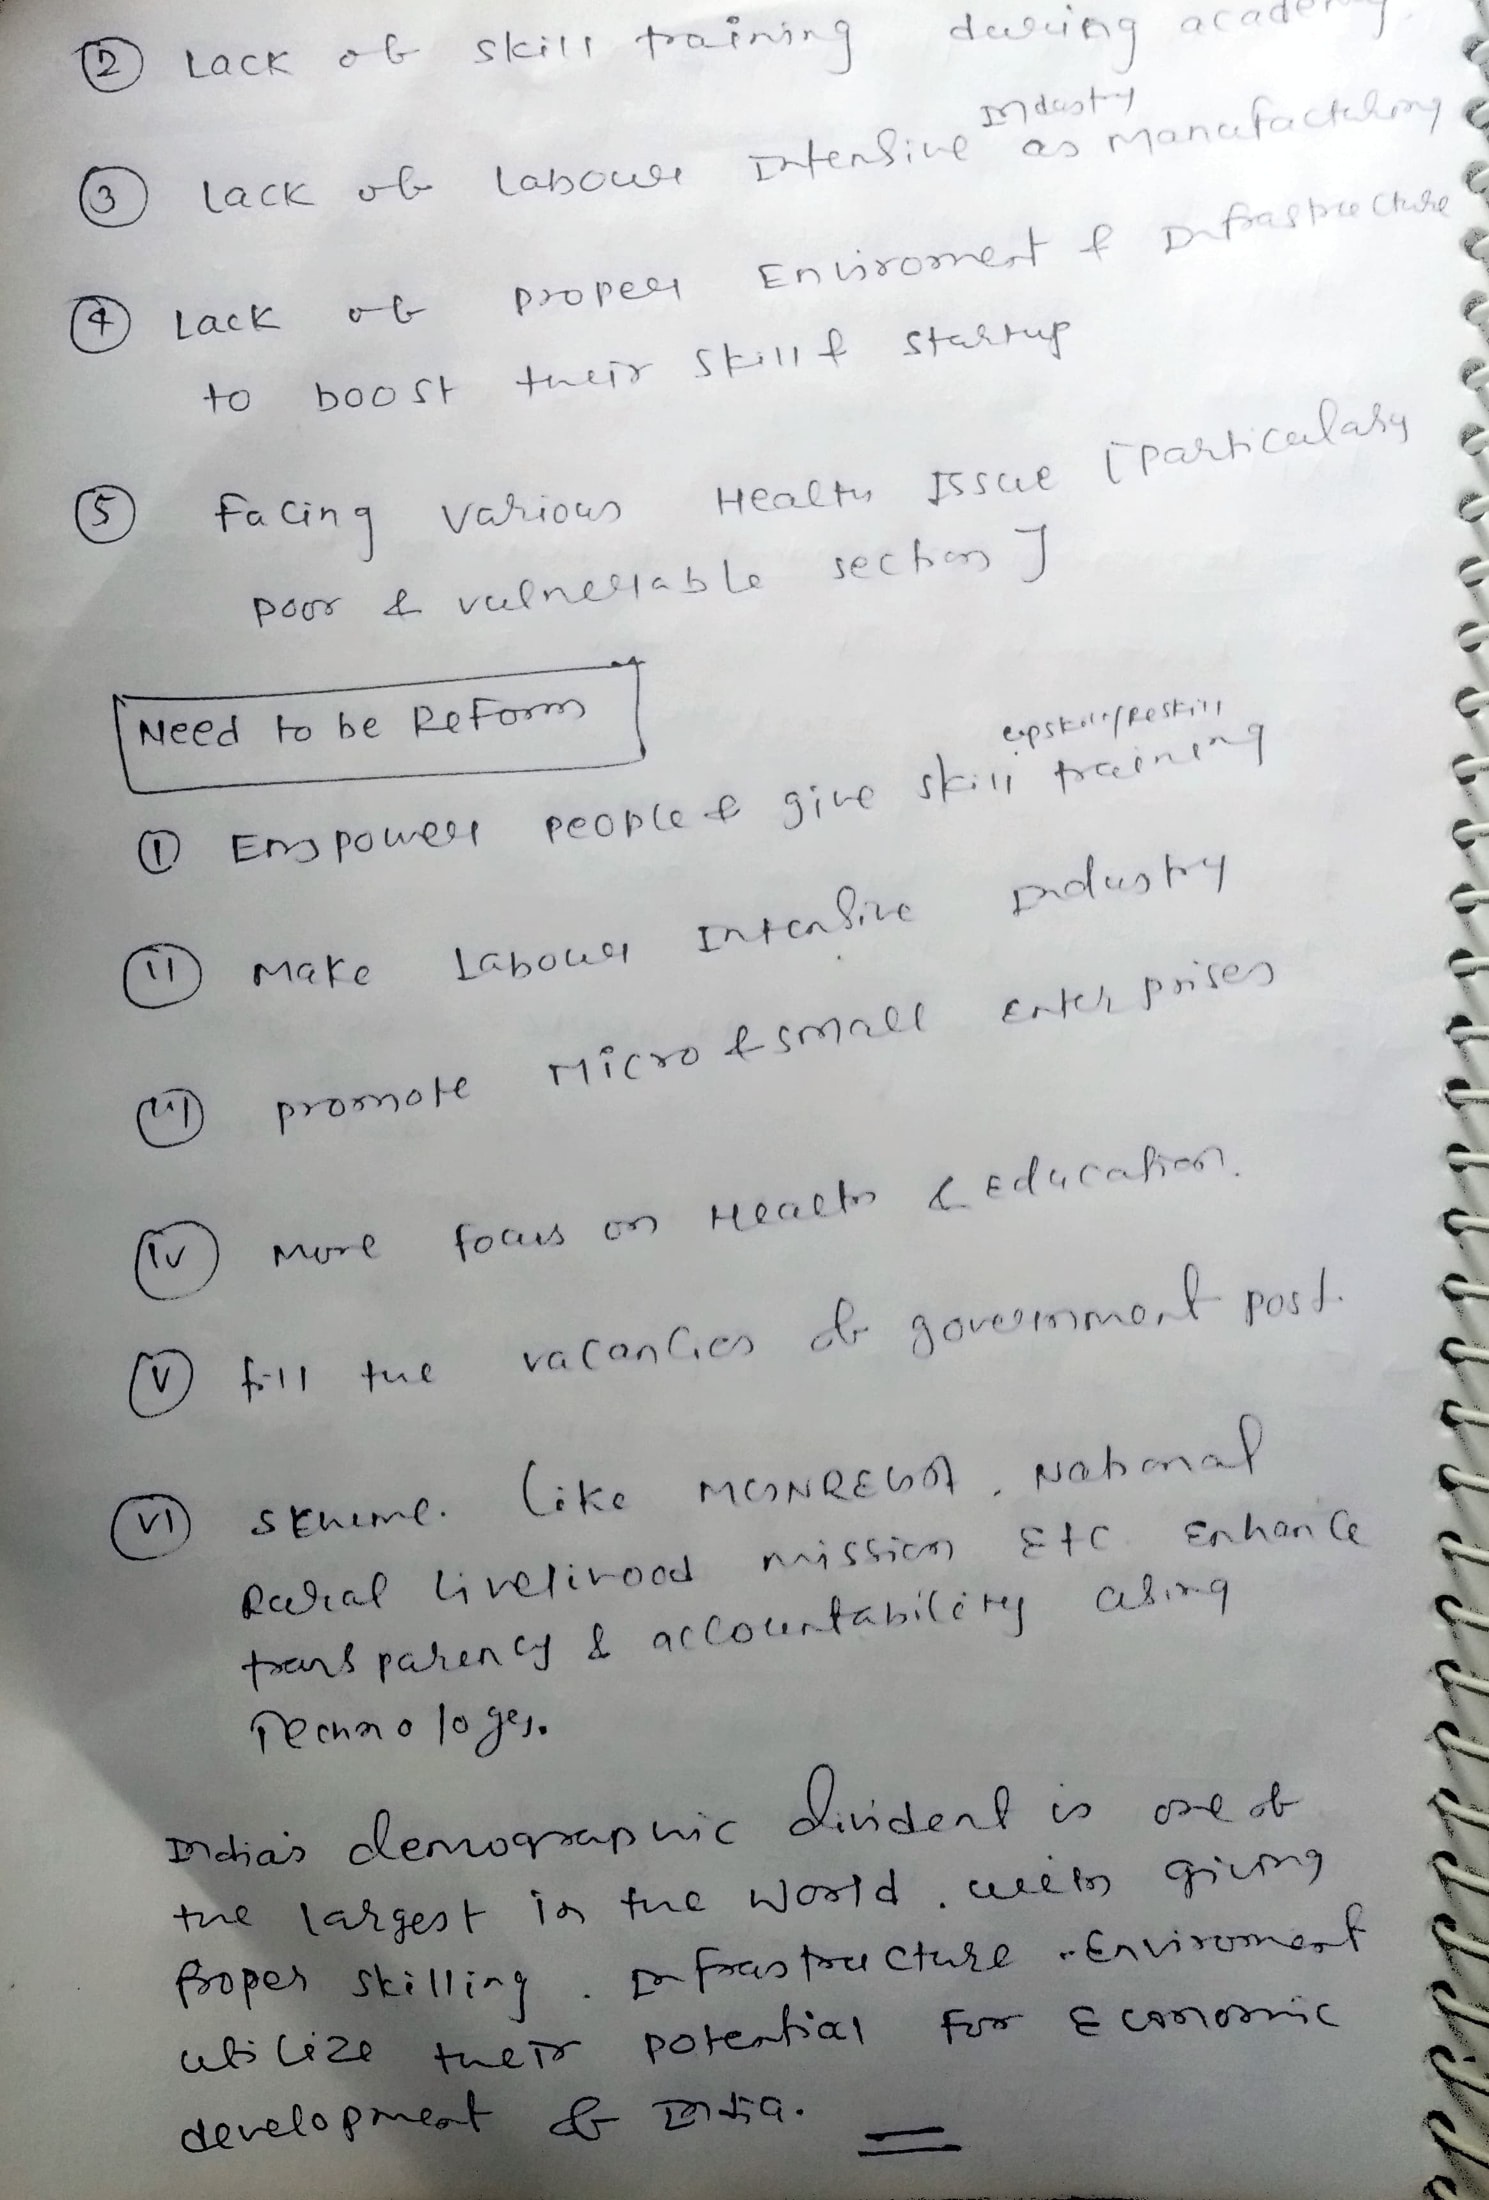 ② Lack of skill training during academy
Industry
③ Lack of Labour Intensive as Manufacturing
④ Lack of proper Enviroment & Infrastructure
to boost their skill & startup
⑤ facing various Health Issue [particulary
poor & vulnerable section]
Need to be Reform
upskill/Reskill
① Empower people & give skill training
(ii) Make Labour Intensive Industry
(iii) promote Micro & small Enterprises
(iv) More focus on Health & Education.
(v) fill the vacancies of government post.
(vi) skheme. like MGNREGA, National
Rural livelihood mission Etc. Enhance
transparency & accountability using
Technologes.
India's demographic dividend is one of
the largest in the world. with giving
proper skilling. Infrastructure. Enviroment
utilize their potential for Economic
development of India.